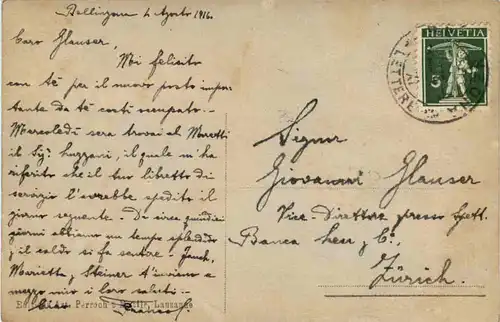 Bellinzona 4 Agosto 1916.
Caro Glauser,
Mi felicito
con te per il nuovo posto impor-
tante da te costì occupato. –
Mercoledì sera trovai al Moretti
il Sig. Luzzani, il quale mi ha
riferito che il tuo libretto di
servizio l'avrebbe spedito il
giorno seguente. – Da circa quindici
giorni abbiamo un tempo splendido
e il caldo si fa sentire.
Marietta, Steiner t'inviano a
mezzo mio i loro saluti –
Ciao
Art. Perrochet Lausanne
HELVETIA
5
LETTERE
Signor
Giovanni Glauser
Vice-Direttore presso Spett.
Banca Leu & C.
Zürich.